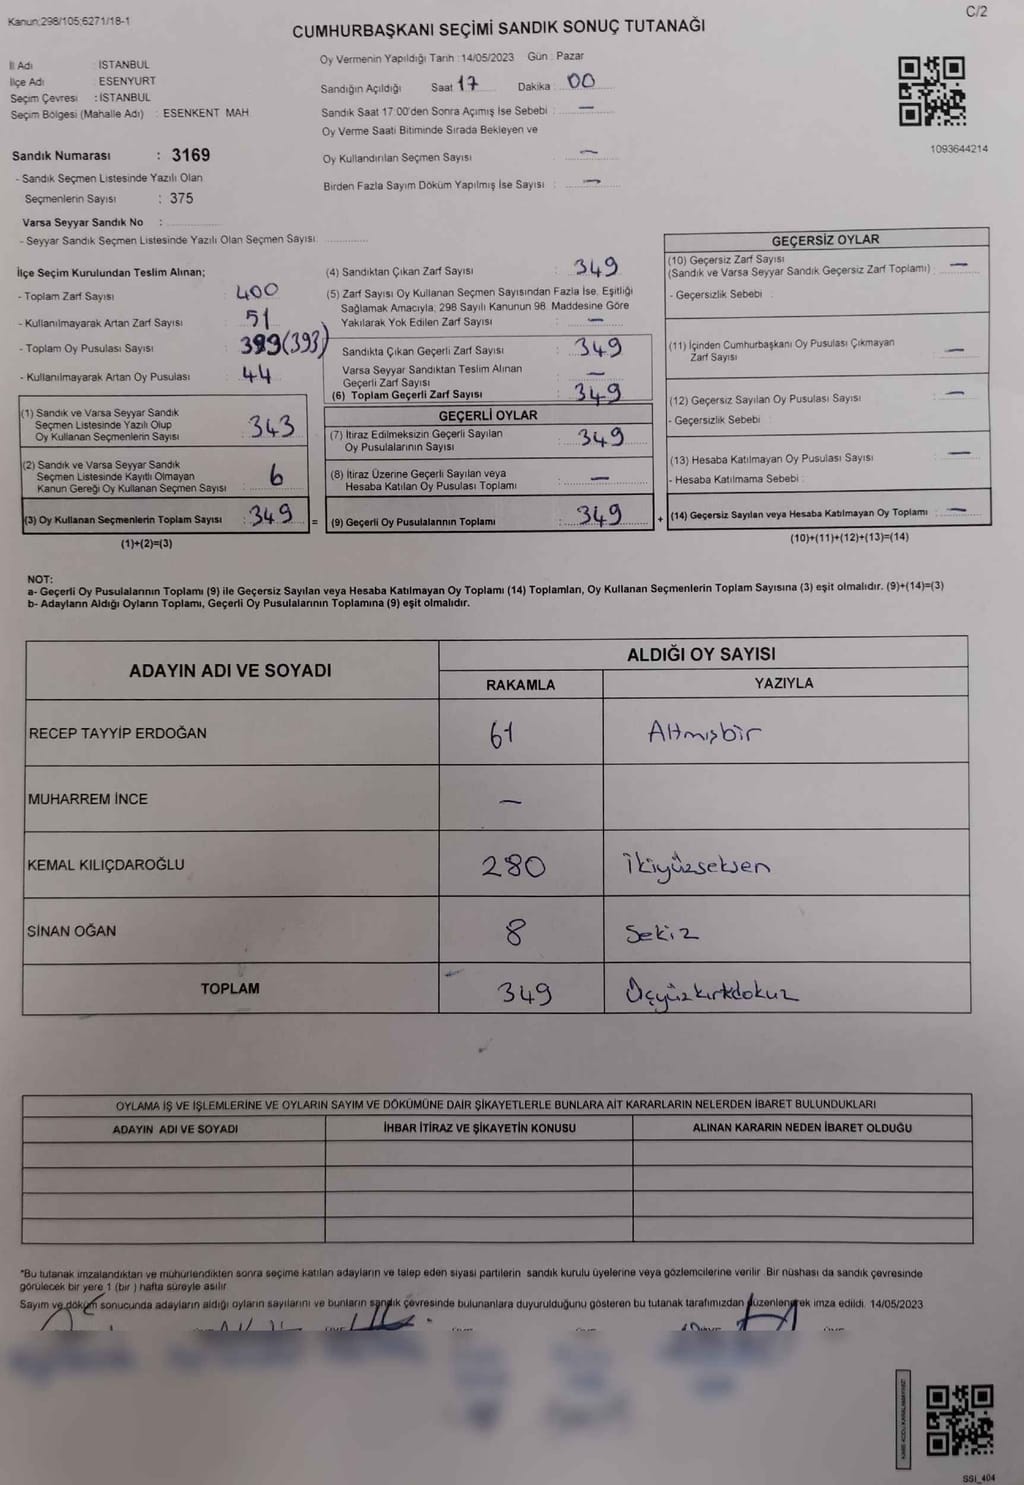 Kanun:298/105;6271/18-1
C/2
CUMHURBAŞKANI SEÇİMİ SANDIK SONUÇ TUTANAĞI
İl Adı : İSTANBUL
İlçe Adı : ESENYURT
Seçim Çevresi : İSTANBUL
Seçim Bölgesi (Mahalle Adı) : ESENKENT MAH
Sandık Numarası : 3169
- Sandık Seçmen Listesinde Yazılı Olan
Seçmenlerin Sayısı : 375
Varsa Seyyar Sandık No :
- Seyyar Sandık Seçmen Listesinde Yazılı Olan Seçmen Sayısı:
Oy Vermenin Yapıldığı Tarih :14/05/2023 Gün : Pazar
Sandığın Açıldığı Saat 17 Dakika : 00
Sandık Saat 17:00'den Sonra Açımış İse Sebebi : —
Oy Verme Saati Bitiminde Sırada Bekleyen ve
Oy Kullandırılan Seçmen Sayısı : —
Birden Fazla Sayım Döküm Yapılmış İse Sayısı : —
1093644214
İlçe Seçim Kurulundan Teslim Alınan;
- Toplam Zarf Sayısı : 400
- Kullanılmayarak Artan Zarf Sayısı : 51
- Toplam Oy Pusulası Sayısı : 399(393)
- Kullanılmayarak Artan Oy Pusulası : 44
(1) Sandık ve Varsa Seyyar Sandık
Seçmen Listesinde Yazılı Olup
Oy Kullanan Seçmenlerin Sayısı : 343
(2) Sandık ve Varsa Seyyar Sandık
Seçmen Listesinde Kayıtlı Olmayan
Kanun Gereği Oy Kullanan Seçmen Sayısı : 6
(3) Oy Kullanan Seçmenlerin Toplam Sayısı : 349 =
(1)+(2)=(3)
(4) Sandıktan Çıkan Zarf Sayısı : 349
(5) Zarf Sayısı Oy Kullanan Seçmen Sayısından Fazla İse, Eşitliği
Sağlamak Amacıyla; 298 Sayılı Kanunun 98. Maddesine Göre
Yakılarak Yok Edilen Zarf Sayısı : —
Sandıkta Çıkan Geçerli Zarf Sayısı : 349
Varsa Seyyar Sandıktan Teslim Alınan
Geçerli Zarf Sayısı : —
(6) Toplam Geçerli Zarf Sayısı : 349
GEÇERLİ OYLAR
(7) İtiraz Edilmeksizin Geçerli Sayılan
Oy Pusulalarının Sayısı : 349
(8) İtiraz Üzerine Geçerli Sayılan veya
Hesaba Katılan Oy Pusulası Toplamı : —
(9) Geçerli Oy Pusulalarının Toplamı : 349 +
GEÇERSİZ OYLAR
(10) Geçersiz Zarf Sayısı
(Sandık ve Varsa Seyyar Sandık Geçersiz Zarf Toplamı) : —
- Geçersizlik Sebebi :
(11) İçinden Cumhurbaşkanı Oy Pusulası Çıkmayan
Zarf Sayısı : —
(12) Geçersiz Sayılan Oy Pusulası Sayısı : —
- Geçersizlik Sebebi :
(13) Hesaba Katılmayan Oy Pusulası Sayısı : —
- Hesaba Katılmama Sebebi :
(14) Geçersiz Sayılan veya Hesaba Katılmayan Oy Toplamı : —
(10)+(11)+(12)+(13)=(14)
NOT:
a- Geçerli Oy Pusulalarının Toplamı (9) ile Geçersiz Sayılan veya Hesaba Katılmayan Oy Toplamı (14) Toplamları, Oy Kullanan Seçmenlerin Toplam Sayısına (3) eşit olmalıdır. (9)+(14)=(3)
b- Adayların Aldığı Oyların Toplamı, Geçerli Oy Pusulalarının Toplamına (9) eşit olmalıdır.
ADAYIN ADI VE SOYADI
ALDIĞI OY SAYISI
RAKAMLA YAZIYLA
RECEP TAYYİP ERDOĞAN 61 Altmışbir
MUHARREM İNCE —
KEMAL KILIÇDAROĞLU 280 İkiyüzseksen
SİNAN OĞAN 8 Sekiz
TOPLAM 349 Üçyüzkırkdokuz
OYLAMA İŞ VE İŞLEMLERİNE VE OYLARIN SAYIM VE DÖKÜMÜNE DAİR ŞİKAYETLERLE BUNLARA AİT KARARLARIN NELERDEN İBARET BULUNDUKLARI
ADAYIN ADI VE SOYADI İHBAR İTİRAZ VE ŞİKAYETİN KONUSU ALINAN KARARIN NEDEN İBARET OLDUĞU
*Bu tutanak imzalandıktan ve mühürlendikten sonra seçime katılan adayların ve talep eden siyasi partilerin sandık kurulu üyelerine veya gözlemcilerine verilir. Bir nüshası da sandık çevresinde
görülecek bir yere 1 (bir ) hafta süreyle asılır.
Sayım ve döküm sonucunda adayların aldığı oyların sayılarını ve bunların sandık çevresinde bulunanlara duyurulduğunu gösteren bu tutanak tarafımızdan düzenlenerek imza edildi. 14/05/2023
SSI_404